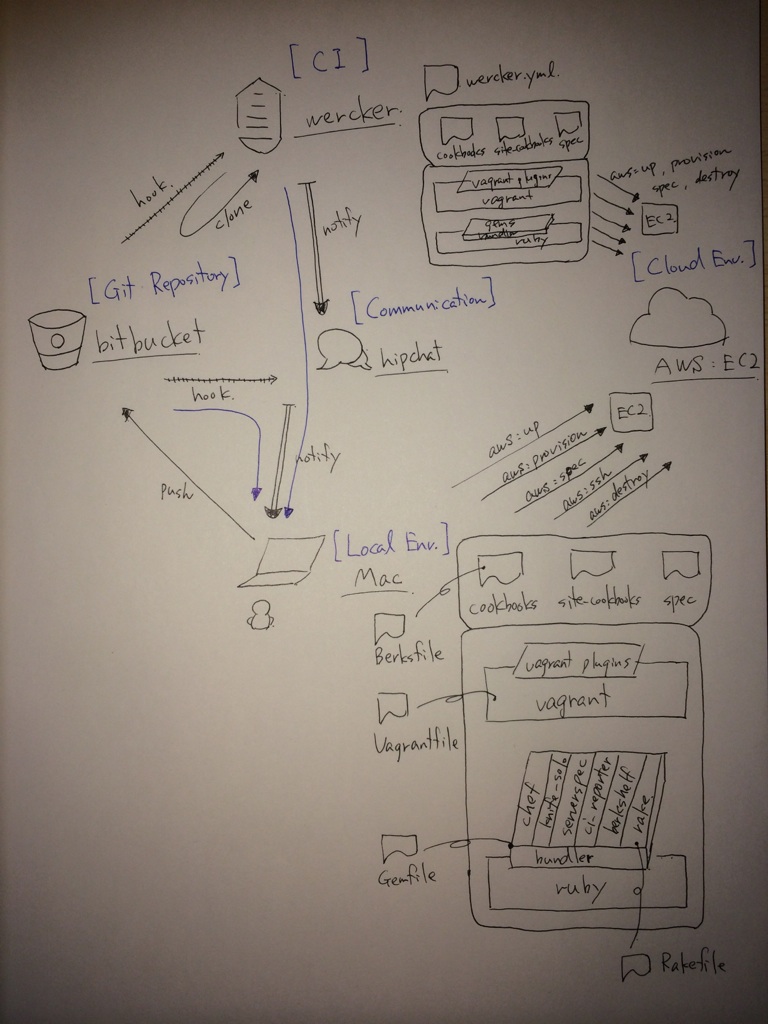 [CI]
wercker.
wercker.yml.
cookbooks site-cookbooks spec
vagrant plugins
vagrant
gems
bundler
ruby
aws:up, provision
spec, destroy
EC2
[Cloud Env.]
AWS:EC2
hook.
clone
notify
[Git Repository]
bitbucket
[Communication]
hipchat
hook.
notify
push
EC2
aws:up
aws:provision
aws:spec
aws:ssh
aws:destroy
[Local Env.]
Mac
cookbooks site-cookbooks spec
Berksfile
vagrant plugins
vagrant
Vagrantfile
chef
knife-solo
serverspec
ci-reporter
berkshelf
rake
bundler
Gemfile
ruby
Rakefile